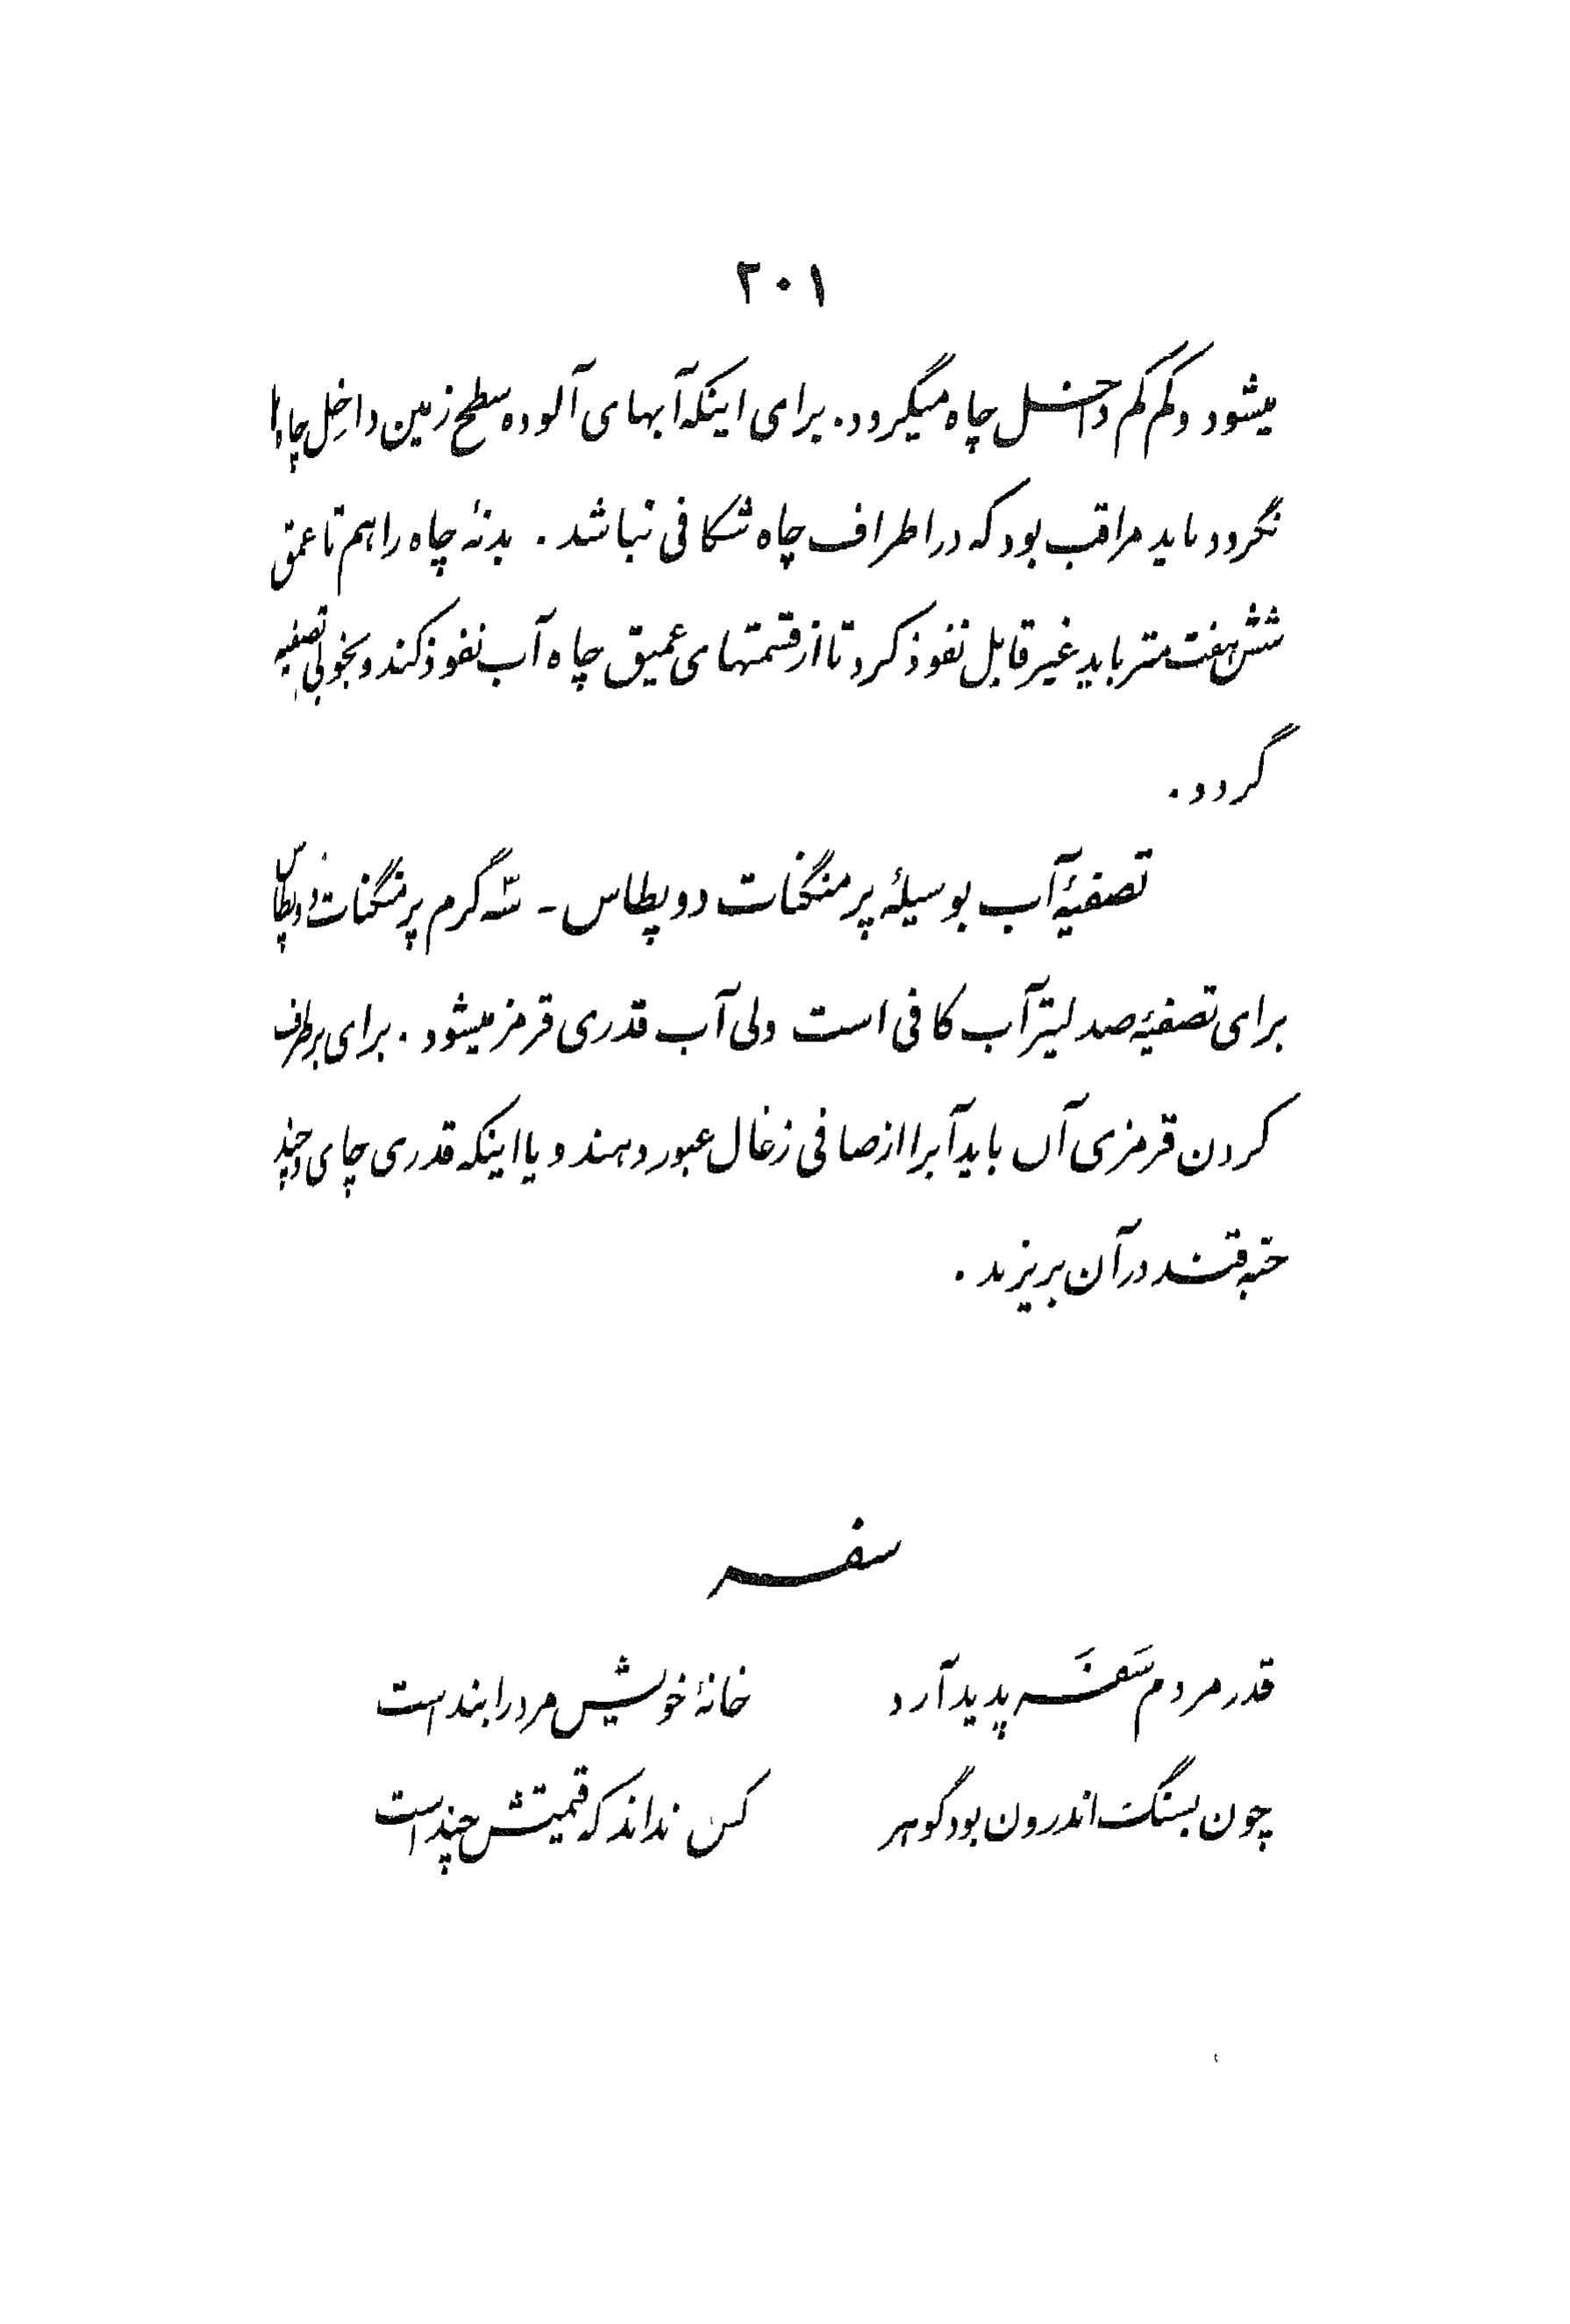 ۲۰۱
میشود و کم کم داخل چاه میگردد. برای اینکه آبهای آلوده سطح زمین داخِل چاهها
نگردد باید مراقب بود که در اطراف چاه شکافی نباشد. بدنهٔ چاه را هم تا عمق
شش هفت متر باید غیر قابل نفوذ کرد تا از قسمتهای عمیق چاه آب نفوذ کند و بخوبی تصفیه
گردد.
تصفیهٔ آب بوسیلهٔ پرمنگنات دو پطاس - سه گرم پرمنگنات دو پطاس
برای تصفیهٔ صد لیتر آب کافی است ولی آب قدری قرمز میشود. برای برطرف
کردن قرمزی آن باید آبرا از صافی زغال عبور دهند و یا اینکه قدری چای و چند
حبّه قند در آن بریزند.
سفر
قدر مردم سَفَر پدید آرد خانهٔ خویش مرد را بند است
چون بسنگ اندرون بود گوهر کس نداند که قیمتش چند است